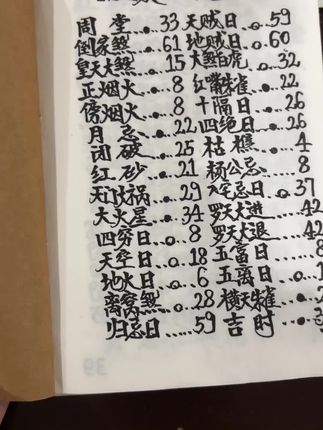 周堂 33 天贼日 59
倒家煞 61 地贼日 60
皇天大煞 15 大煞白虎 32
正烟火 8 红嘴朱雀 22
傍烟火 8 十隔日 26
月忌 22 四绝日 26
闭破 25 枯樵 4
红砂 21 杨公忌 8
天门大祸 29 忌日 37
大火星 34 罗天大进 42
四穷日 8 罗天大退 42
天空日 18 五富日 8
地火日 6 五离日
离窠煞 28 横天朱雀
归忌日 59 吉时
39